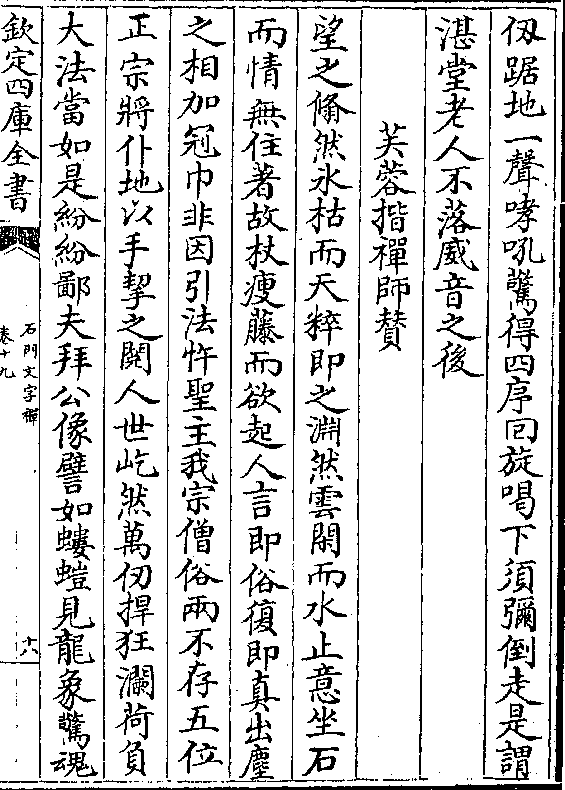 仭踞地一聲哮吼驚得四序囘旋喝下須彌倒走是謂
湛堂老人不落威音之後
芙蓉揩禪師賛
望之翛然氷枯而天粹即之淵然雲閑而水止意坐石
而情無住著故杖瘦藤而欲起人言即俗復即真出塵
之相加冠巾非因引法忤聖主我宗僧俗兩不存五位
正宗將仆地以手挈之閱人世屹然萬仭捍狂瀾荷負
大法當如是紛紛鄙夫拜公像譬如螻螘見龍象驚魂
欽定四庫全書
石門文字禪
卷十九
十六